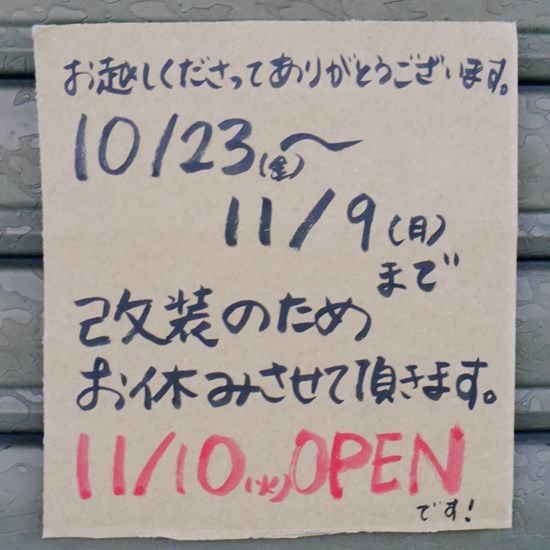 お越しくださってありがとうございます。
10/23(金)〜
11/9(月)
まで
改装のため
お休みさせて頂きます。
11/10(火)OPEN
です!